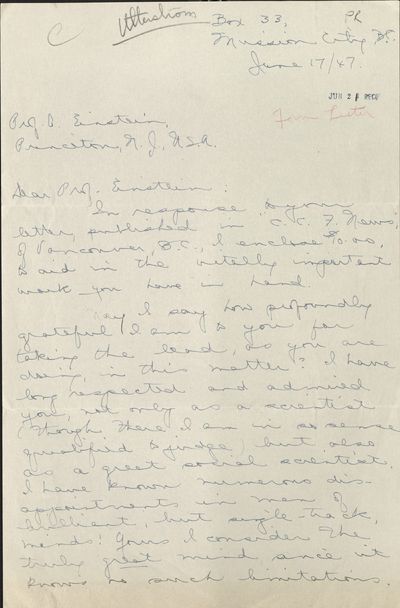 C Utterstrom
Box 33, PR
Mission City B.C.
June 17/47.
JUN 21 REC'D
Form Letter
Prof. A. Einstein,
Princeton, N.J., U.S.A.
Dear Prof. Einstein:
In response to your
letter, published in C.C.F. News,
of Vancouver, B.C., I enclose $10.00,
to aid in the vitally important
work you have in hand.
May I say how profoundly
grateful I am to you for
taking the lead, as you are
doing, in this matter? I have
long respected and admired
you, not only as a scientist
(though there I am in no sense
qualified to judge) but also
as a great social scientist.
I have known numerous dis-
appointments in men of
brilliant, but single-track,
minds! Yours I consider the
truly great mind, since it
knows no such limitations.